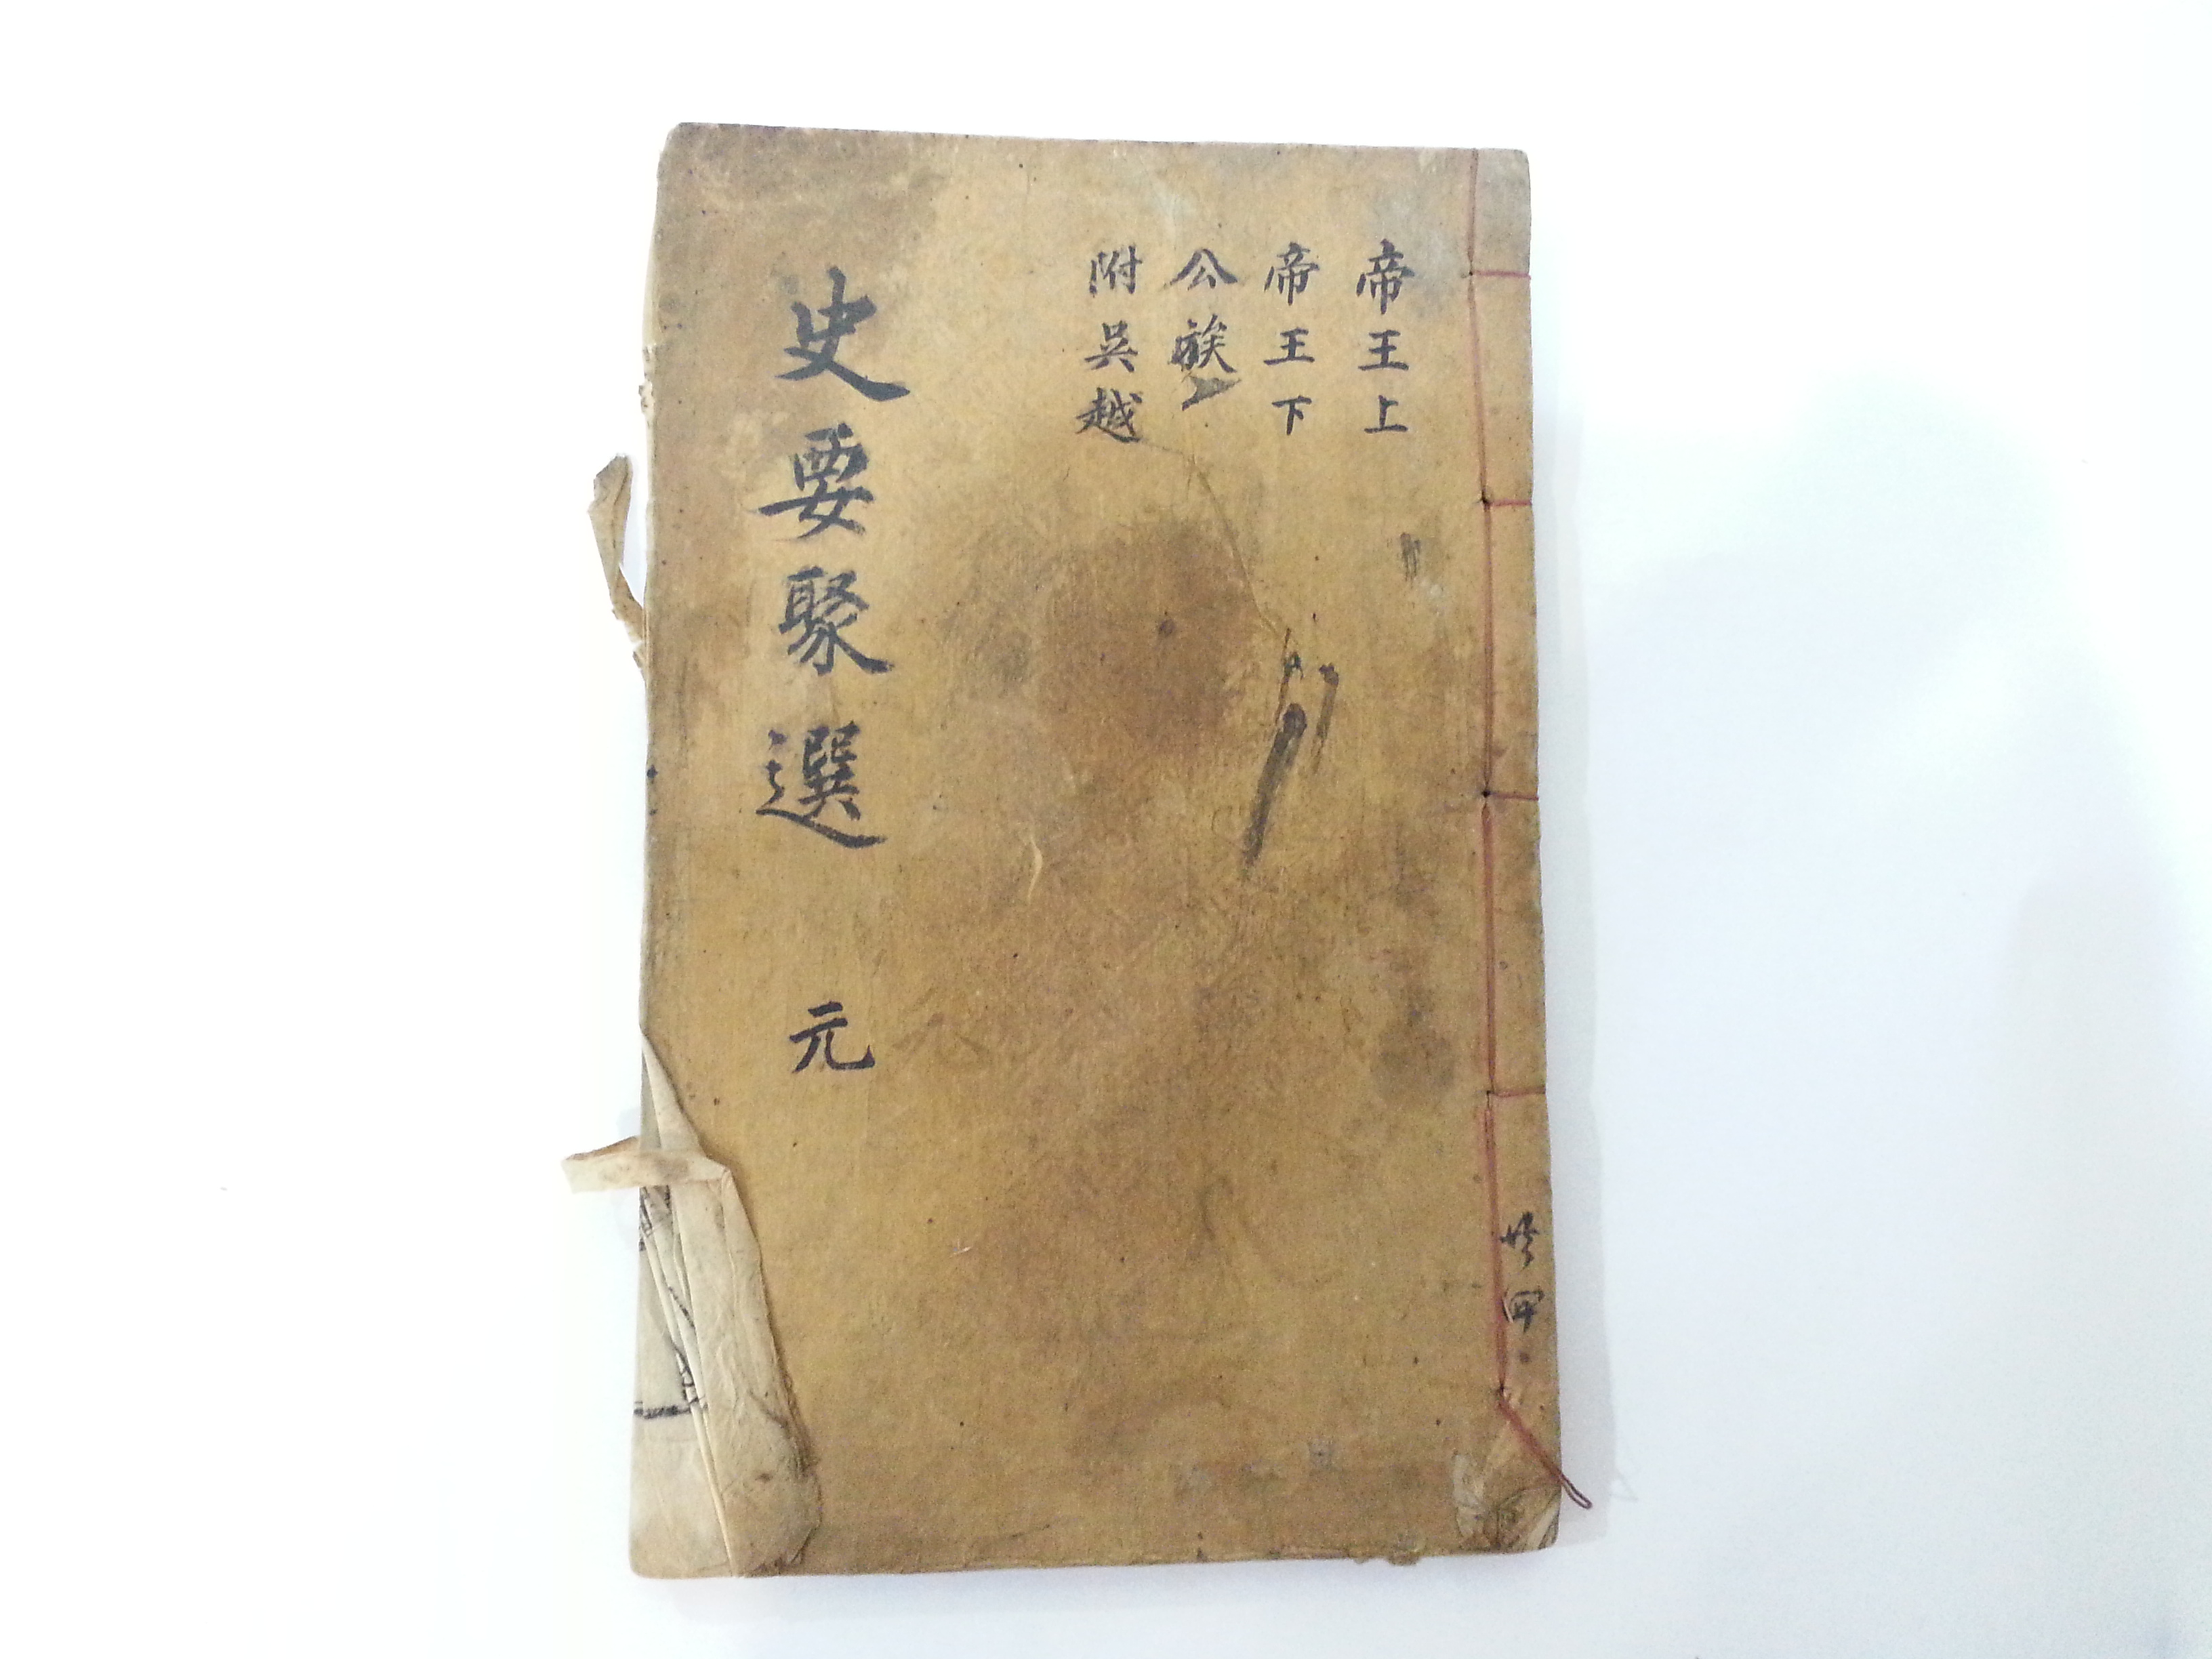 帝王上
帝王下
公族
附吳越
史要聚選 元
共四